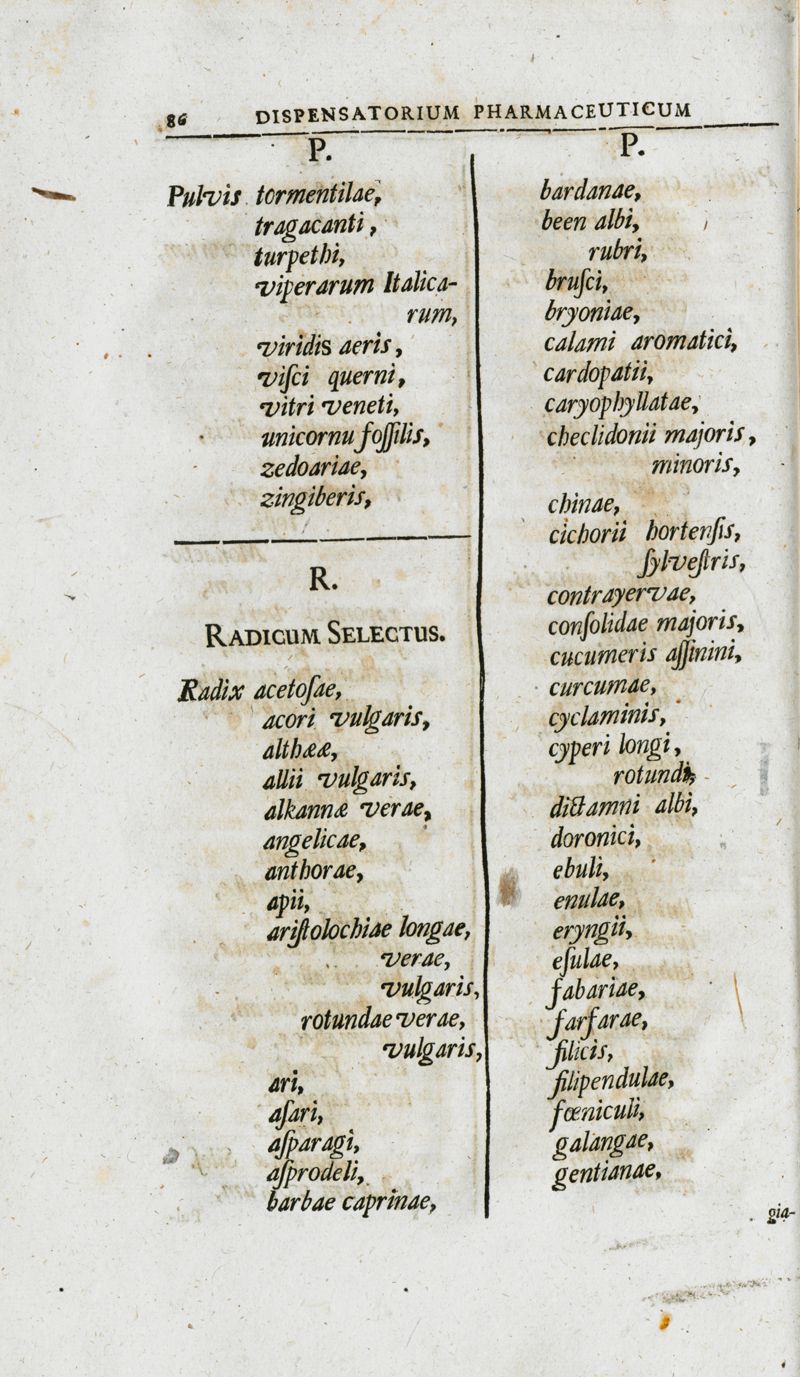 86 DISPENSATORIUM PHARMACEUTICUM
P.
Pulvis tormentilae,
tragacanti,
turpethi,
viperarum Italica-
rum,
viridis aeris,
viſci querni,
vitri veneti,
unicornu foſſilis,
zedoariae,
zingiberis,
R.
RADICUM SELECTUS.
Radix acetoſae,
acori vulgaris,
althææ,
allii vulgaris,
alkannæ verae,
angelicae,
anthorae,
apii,
ariſtolochiae longae,
verae,
vulgaris,
rotundae verae,
vulgaris,
ari,
aſari,
aſparagi,
aſprodeli,
barbae caprinae,
P.
bardanae,
been albi,
rubri,
bruſci,
bryoniae,
calami aromatici,
cardopatii,
caryophyllatae,
checlidonii majoris,
minoris,
chinae,
cichorii hortenſis,
ſylveſtris,
contrayervae,
conſolidae majoris,
cucumeris aſſinini,
curcumae,
cyclaminis,
cyperi longi,
rotundi,
dictamni albi,
doronici,
ebuli,
enulae,
eryngii,
eſulae,
fabariae,
farfarae,
filicis,
filipendulae,
fœniculi,
galangae,
gentianae,
gia-